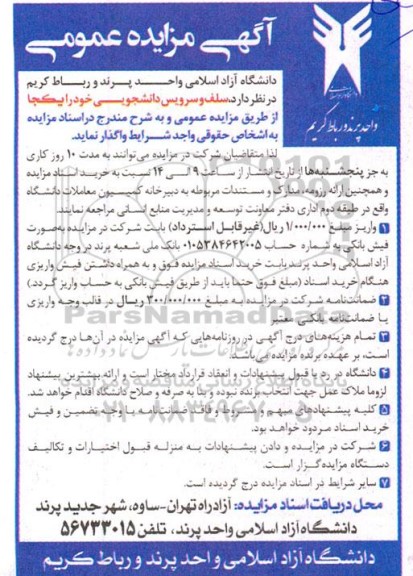 آگهی مزایده عمومی
واحد پرند و رباط کریم
دانشگاه آزاد اسلامی واحد پرند و رباط کریم
در نظر دارد، سلف و سرویس دانشجویی خود را یکجا
از طریق مزایده عمومی و به شرح مندرج در اسناد مزایده
به اشخاص حقوقی واجد شرایط واگذار نماید.
لذا متقاضیان شرکت در مزایده می‌توانند به مدت ۱۰ روز کاری
به جز پنجشنبه‌ها از تاریخ انتشار از ساعت ۹ الی ۱۴ نسبت به خرید اسناد مزایده
و همچنین ارائه رزومه، مدارک و مستندات مربوطه به دبیرخانه کمیسیون معاملات دانشگاه
واقع در طبقه دوم اداری دفتر معاونت توسعه و مدیریت منابع انسانی مراجعه نمایند.
۱ واریز مبلغ ۱/۰۰۰/۰۰۰ ریال (غیرقابل استرداد) بابت شرکت در مزایده به‌صورت
فیش بانکی به شماره حساب ۰۱۰۵۳۸۴۶۴۲۰۰۵ بانک ملی شعبه پرند در وجه دانشگاه
آزاد اسلامی واحد پرند بابت خرید اسناد مزایده فوق و به همراه داشتن فیش واریزی
هنگام خرید اسناد (مبلغ فوق حتما باید از طریق فیش بانکی به حساب واریز گردد)
۲ ضمانت‌نامه شرکت در مزایده به مبلغ ۳۰۰/۰۰۰/۰۰۰ ریال در قالب وجه واریزی
یا ضمانت‌نامه بانکی معتبر
۳ تمام هزینه‌های درج آگهی در روزنامه‌هایی که آگهی مزایده در آن‌ها درج گردیده
است، بر عهده برنده مزایده می‌باشد.
۴ دانشگاه در رد یا قبول پیشنهادات و انعقاد قرارداد مختار است و ارائه بیشترین پیشنهاد
لزوما ملاک عمل جهت انتخاب برنده نبوده و بنا به صرفه و صلاح دانشگاه اقدام خواهد شد.
۵ کلیه پیشنهادهای مبهم و مشروط و فاقد ضمانت‌نامه یا وجه تضمین و فیش
خرید اسناد مردود خواهد بود.
۶ شرکت در مزایده و دادن پیشنهادات به منزله قبول اختیارات و تکالیف
دستگاه مزایده گزار است.
۷ سایر شرایط در اسناد مزایده درج گردیده است.
محل دریافت اسناد مزایده: آزادراه تهران-ساوه، شهر جدید پرند
دانشگاه آزاد اسلامی واحد پرند، تلفن ۵۶۷۳۳۰۱۵
دانشگاه آزاد اسلامی واحد پرند و رباط کریم
ParsNamadData
۰۲۱-۸۸۳۴۹۶۷۰